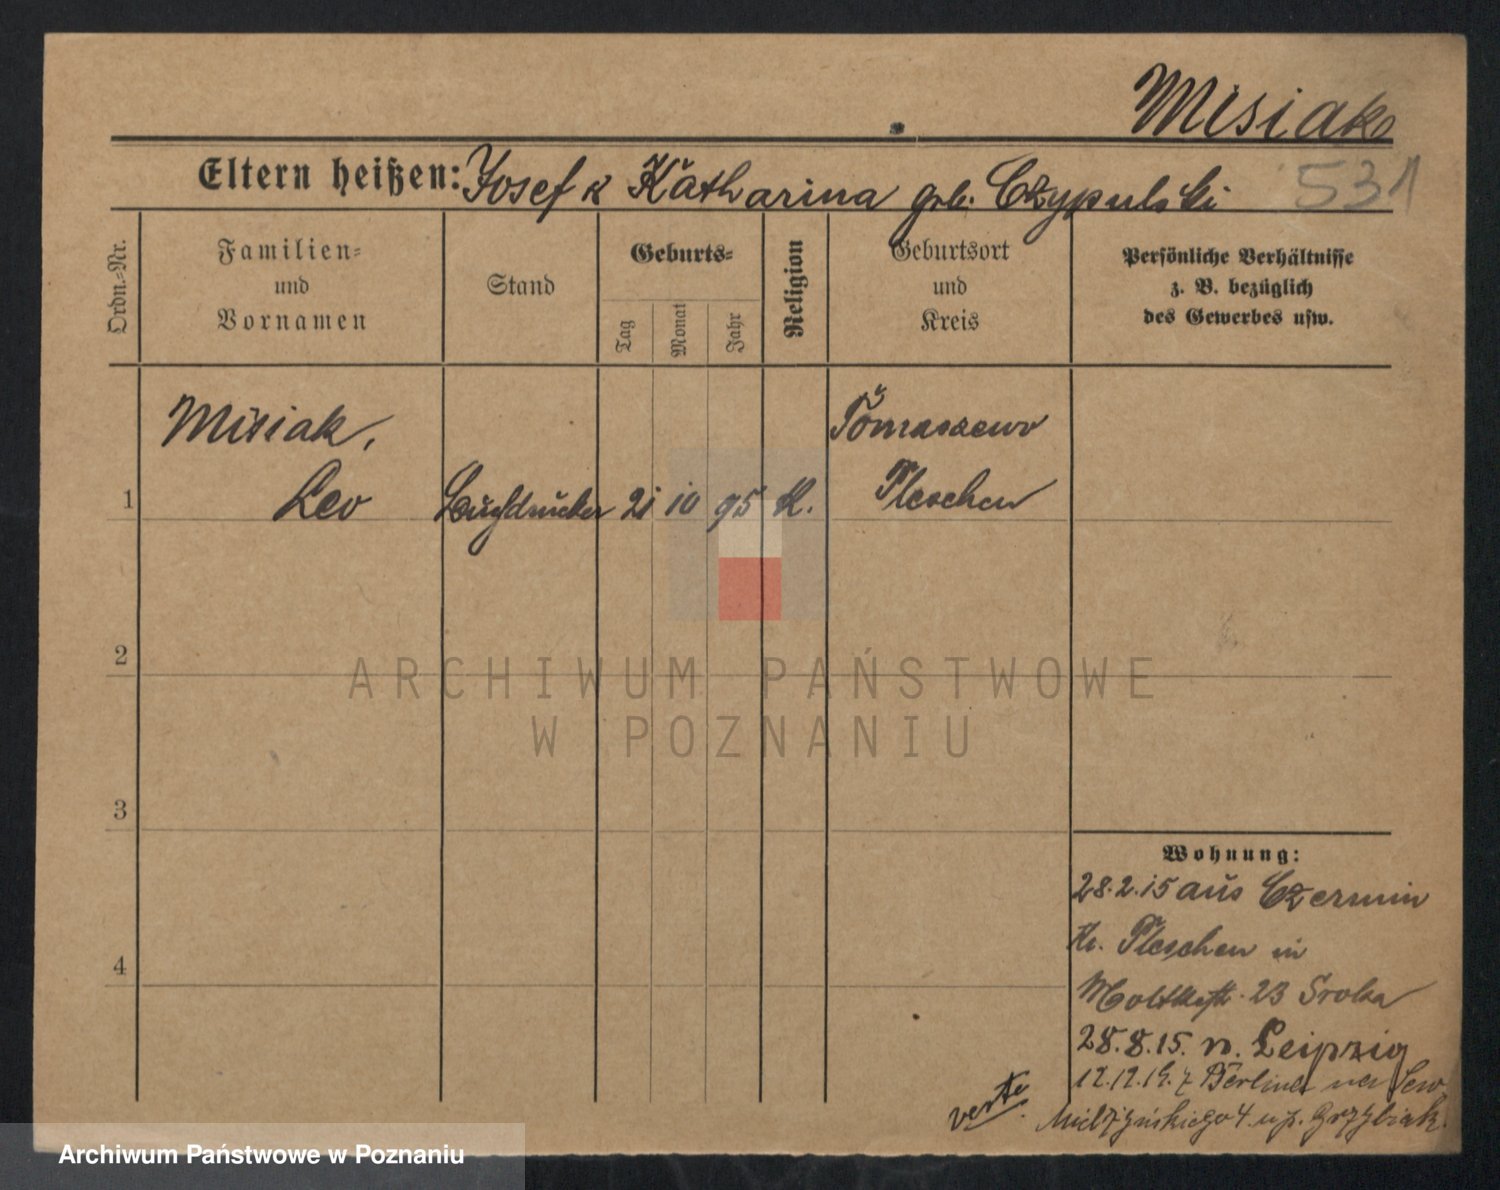 Misiak
Eltern heißen: Josef & Katharina geb. Czypulski 531
Ordn.-Nr.
Familien-
und
Vornamen
Stand
Geburts-
Tag
Monat
Jahr
Religion
Geburtsort
und
Kreis
Persönliche Verhältnisse
z. B. bezüglich
des Gewerbes usw.
Misiak,
Tomaszewo
1 Leo Buchdrucker 21 10 95 K. Pleschen
2
ARCHIWUM PAŃSTWOWE
W POZNANIU
3
Wohnung:
28.2.15 aus Czermin
Kr. Pleschen in
4
Moltkestr. 23 Sroka
28.8.15. n. Leipzig
12.12.19. z Berlina na Sew.
verte
Mielżyńskiego 4. u p. Grzybiak.
Archiwum Państwowe w Poznaniu